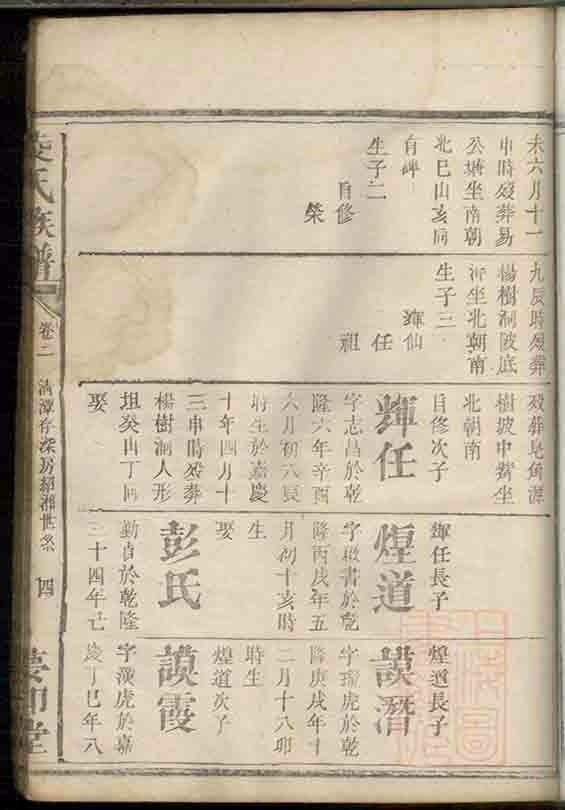 未六月十一
申時歿葬易
公塘坐南朝
北巳山亥向
有碑
生子二
自修
榮
九辰時歿葬
楊樹洞陂底
坐北朝南
生子三
輝仙
任
祖
歿葬皂角源
樹坡中嘴坐
北朝南
自修次子
輝任
字志昌於乾
隆六年辛酉
六月初六辰
時生於嘉慶
十年四月十
三申時歿葬
楊樹洞人形
坦癸山丁向
娶
輝任長子
煌道
字緻書於乾
隆丙戌年五
月初十亥時
生
娶
彭氏
勤貞於乾隆
三十四年己
煌道長子
謨潛
字瓊虎於乾
隆庚戌年十
二月十八卯
時生
煌道次子
謨霞
字漢虎於嘉
慶丁巳年八
氏族譜
卷二
清潭存深房紹湘世系
四